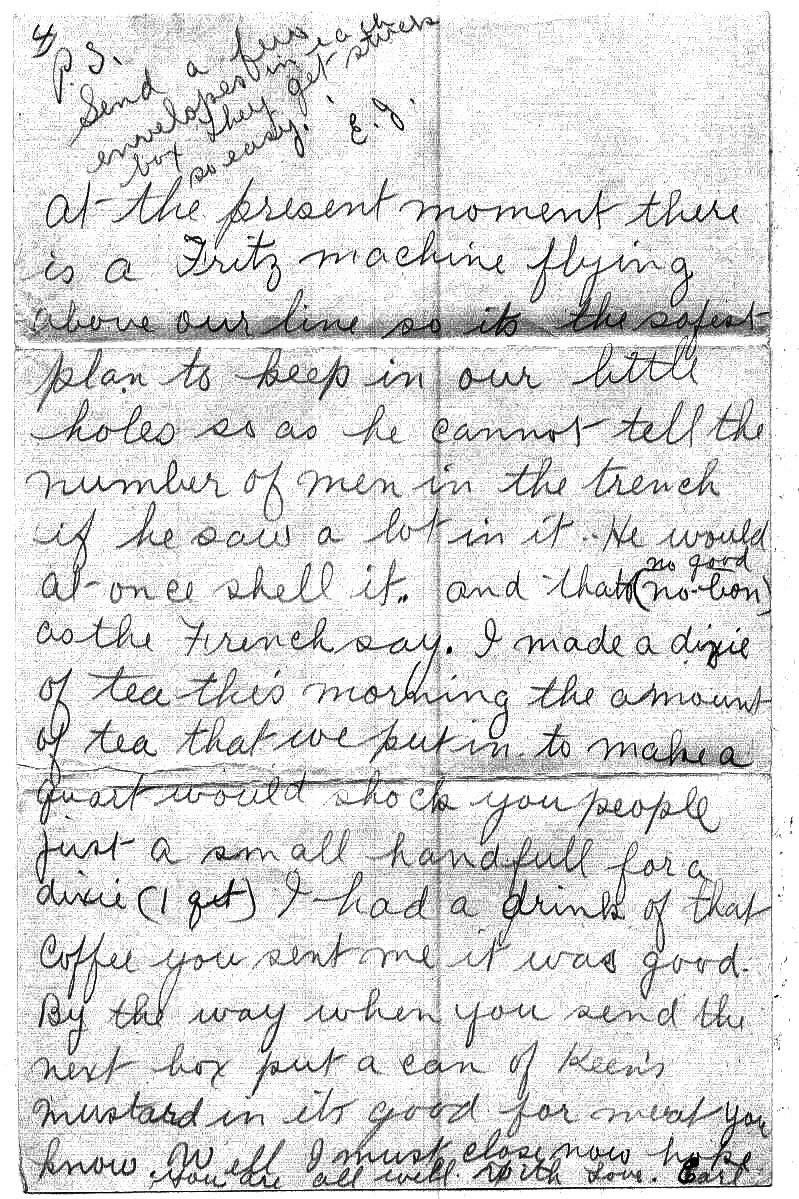 4
P.S.
Send a few
envelopes in each
box they get stuck
so easy. E.J.
at the present moment there
is a Fritz machine flying
above our line so its the safest
plan to keep in our little
holes so as he cannot tell the
number of men in the trench
if he saw a lot in it. He would
at once shell it. and thats (no-bon)
no good
as the French say. I made a dixie
of tea this morning the amount
of tea that we put in to make a
quart would shock you people
just a small handfull for a
dixie (1 qrt) I had a drink of that
Coffee you sent me it was good.
By the way when you send the
next box put a can of Keen's
mustard in its good for meat you
know. Well I must close now hope
you are all well. With Love. Earl